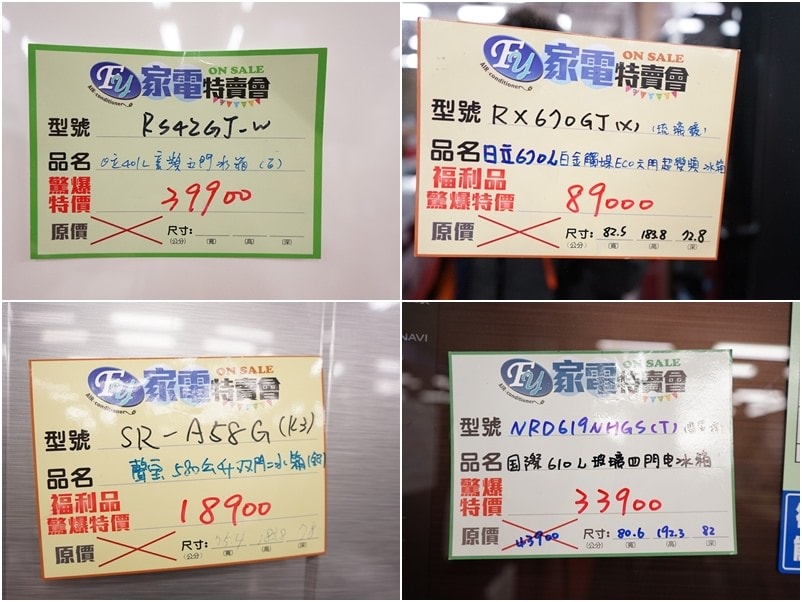 FY
AIR-conditioner
ON SALE
家電特賣會
型號 RS42GJ-W
品名 日立401L變頻五門冰箱(白)
驚爆特價 39900
原價
尺寸:
(公分) (寬) (高) (深)
FY
AIR-conditioner
ON SALE
家電特賣會
型號 RX670GJ(X) (琉璃鏡)
品名 日立670L白金觸媒ECO六門超變頻冰箱
福利品
驚爆特價 89000
原價
尺寸: 82.5 183.8 72.8
(公分) (寬) (高) (深)
FY
AIR-conditioner
ON SALE
家電特賣會
型號 SR-A58G(K3)
品名 聲寶580公升双門冰箱
福利品
驚爆特價 18900
原價
尺寸: 75.4
(公分) (寬) (高) (深)
NAVI
FY
AIR-conditioner
ON SALE
家電特賣會
型號 NRD619NHGS(T)
品名 国際610L玻璃四門电冰箱
驚爆特價 33900
原價 43900
尺寸: 80.6 192.3 82
(公分) (寬) (高) (深)